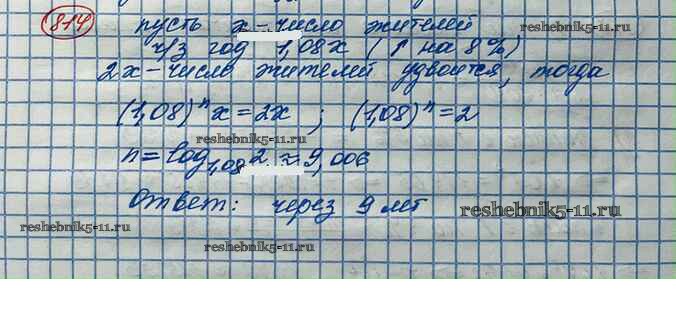 814 пусть x - число жителей reshebnik5-11.ru
ч/з год 1,08x (↑ на 8%)
2x - число жителей удвоится, тогда
(1,08)ⁿx = 2x ; (1,08)ⁿ = 2
reshebnik5-11.ru
n = log₁,₀₈2 ≈ 9,006
Ответ: через 9 лет reshebnik5-11.ru
reshebnik5-11.ru
reshebnik5-11.ru